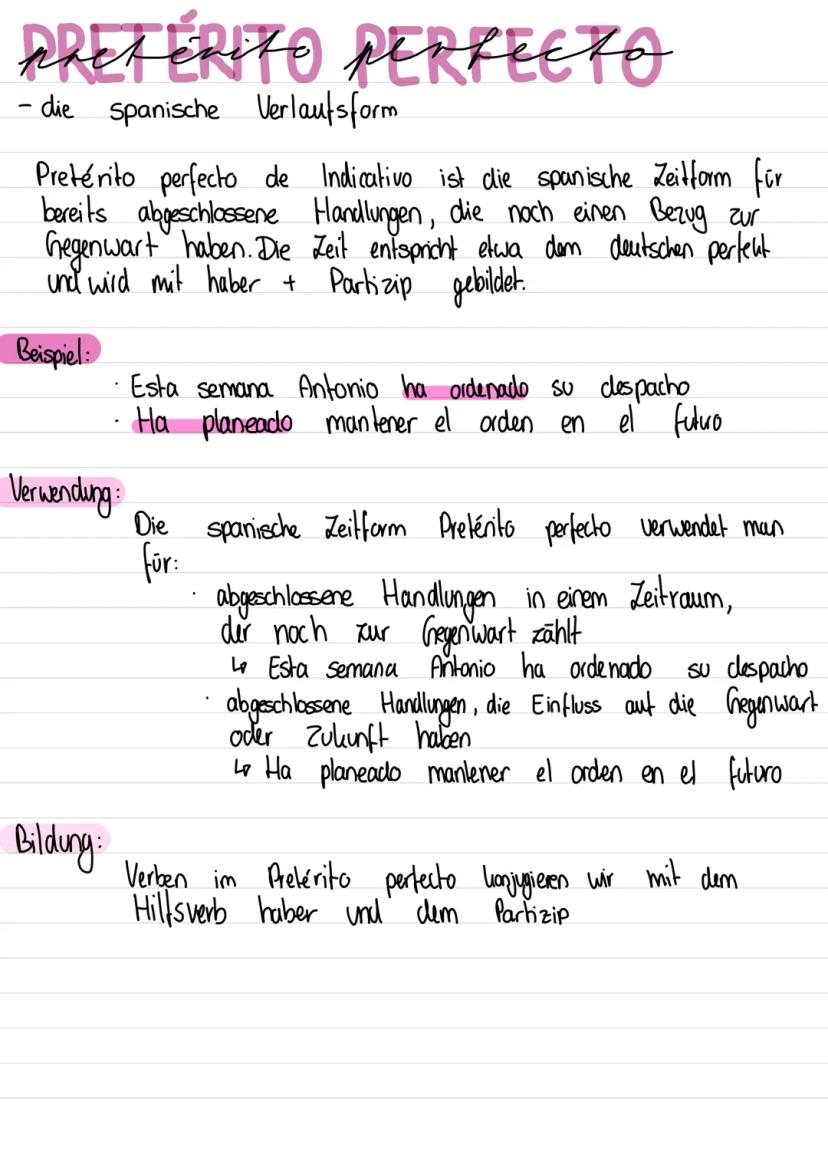 PRETÉRITO PERFECTO
pretérito perfecto
- die spanische Verlaufsform
Pretérito perfecto de Indicativo ist die spanische Zeitform für
bereits abgeschlossene Handlungen, die noch einen Bezug zur
Gegenwart haben. Die Zeit entspricht etwa dem deutschen perfekt
und wird mit haber + Partizip gebildet.
Beispiel:
· Esta semana Antonio ha ordenado su despacho
· Ha planeado mantener el orden en el futuro
Verwendung:
Die spanische Zeitform Pretérito perfecto verwendet man
für:
· abgeschlossene Handlungen in einem Zeitraum,
der noch zur Gegenwart zählt
↳ Esta semana Antonio ha ordenado su despacho
· abgeschlossene Handlungen, die Einfluss auf die Gegenwart
oder Zukunft haben
↳ Ha planeado mantener el orden en el futuro
Bildung:
Verben im Pretérito perfecto konjugieren wir mit dem
Hilfsverb haber und dem Partizip